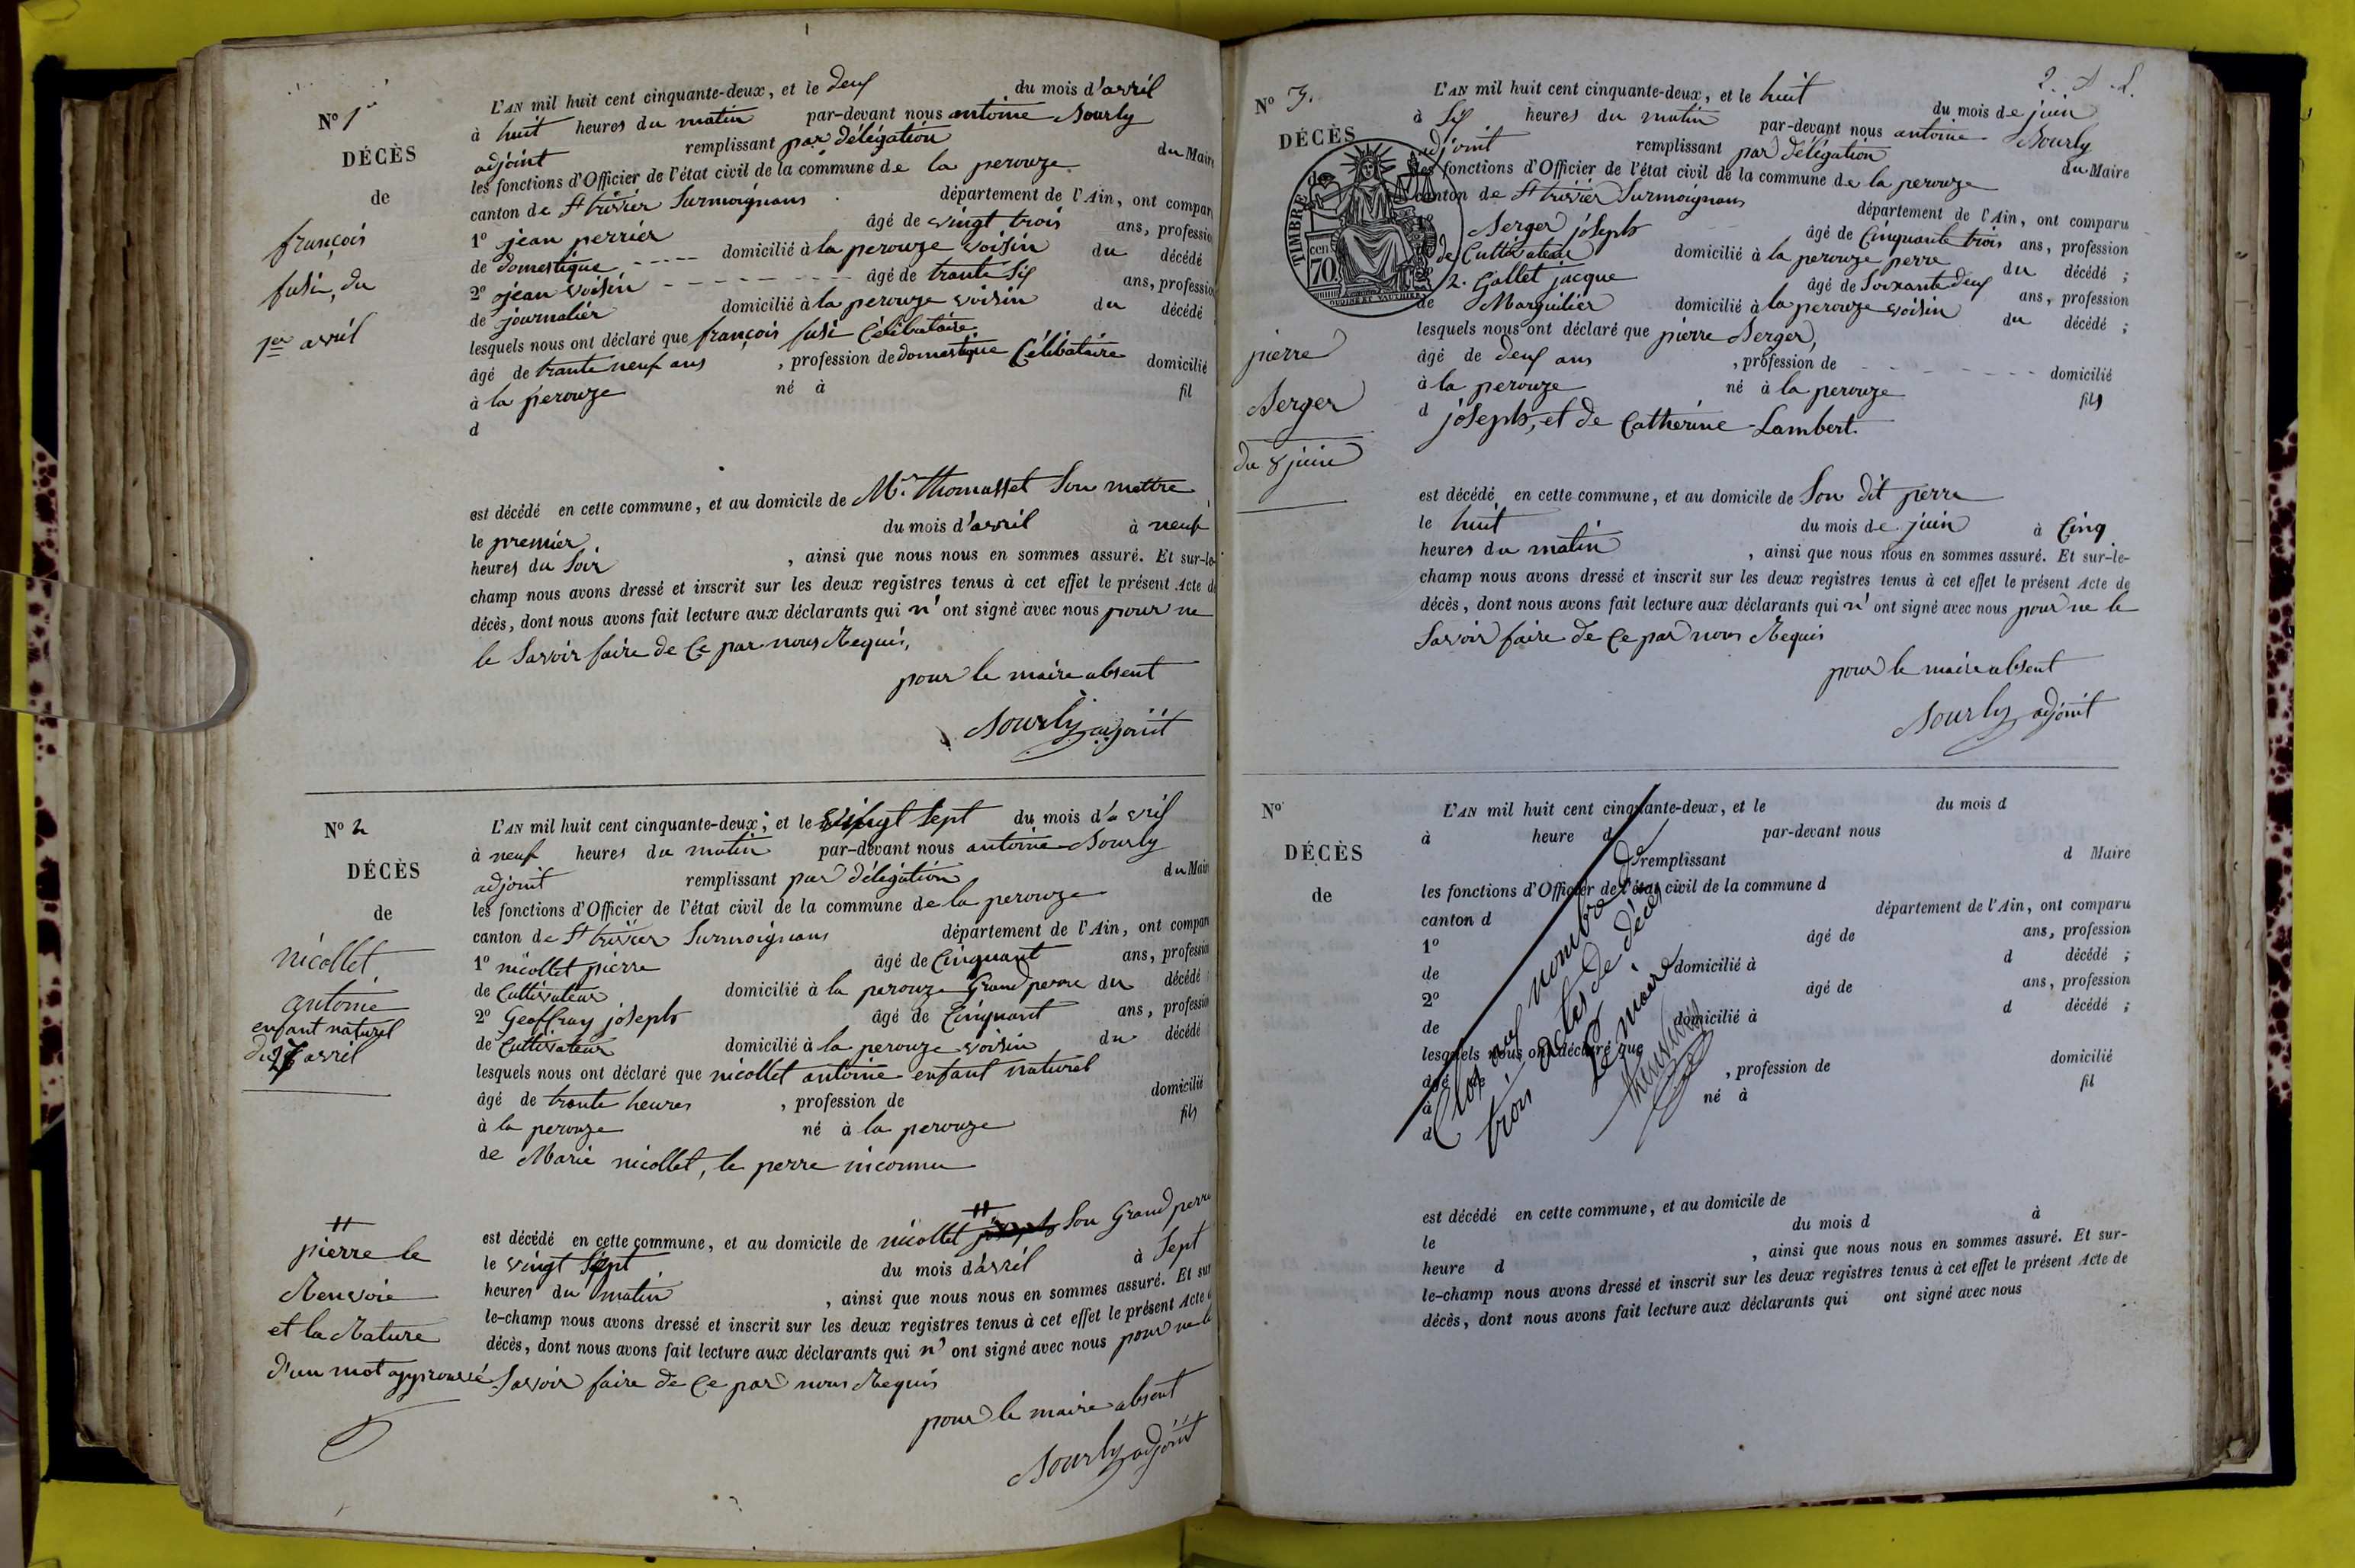 N° 1er
DÉCÈS
de
françois
fusi, du
1er avril
L'AN mil huit cent cinquante-deux, et le deux du mois d'avril
à huit heures du matin par-devant nous antoine Sourly
adjoint remplissant par délégation du Maire
les fonctions d'Officier de l'état civil de la commune de la perouze
canton de St trivier Surmoignans département de l'Ain, ont compar
1° jean perrier âgé de vingt trois ans, professio
de domestique domicilié à la perouze voisin du décédé
2° jean voisin âgé de trante Six ans, professio
de journalier domicilié à la perouze voisin du décédé
lesquels nous ont déclaré que françois fusi Célibataire
âgé de trante neuf ans , profession de domestique Célibataire domicilié
à la perouze né à fil
d
est décédé en cette commune, et au domicile de Mr. thomasset Son mettre
le premier du mois d'avril à neuf
heures du Soir , ainsi que nous nous en sommes assuré. Et sur-le-
champ nous avons dressé et inscrit sur les deux registres tenus à cet effet le présent Acte d
décès, dont nous avons fait lecture aux déclarants qui n'ont signé avec nous pour ne
le Savoir faire de Ce par nous Requis,
pour le maire absent
Sourly adjoint
N° 2
DÉCÈS
de
nicollet
antoine
enfant naturel
du 27 avril
L'AN mil huit cent cinquante-deux, et le vingt Sept du mois d'avril
à neuf heures du matin par-devant nous antoine Sourly
adjoint remplissant par délégation du Mair
les fonctions d'Officier de l'état civil de la commune de la perouze
canton de St trivier Surmoignans département de l'Ain, ont compar
1° nicollet pierre âgé de Cinquant ans, professio
de Cultivateur domicilié à la perouze Grand perre du décédé
2° Geoffray joseph âgé de Cinquant ans, professio
de Cultivateur domicilié à la perouze voisin du décédé
lesquels nous ont déclaré que nicollet antoine enfant naturel
âgé de trante heures , profession de domicilié
à la perouze né à la perouze fils
de Marie nicollet, le perre inconnu
est décédé en cette commune, et au domicile de nicollet Son Grand perre
le vingt Sept du mois d'avril à Sept
heures du matin , ainsi que nous nous en sommes assuré. Et sur
le-champ nous avons dressé et inscrit sur les deux registres tenus à cet effet le présent Acte d
décès, dont nous avons fait lecture aux déclarants qui n'ont signé avec nous pour ne le
Savoir faire de Ce par nous Requis
pierre le
Renvoie
et la Rature
d'un mot approuvé
pour le maire absent
Sourly adjoint
N° 3.
DÉCÈS
de
TIMBRE
cen
70
OUDINE ET VAUTHIER
pierre
Berger
du 8 juin
L'AN mil huit cent cinquante-deux, et le huit du mois de juin
à Six heures du matin par-devant nous antoine Sourly
adjoint remplissant par délégation du Maire
les fonctions d'Officier de l'état civil de la commune de la perouze
canton de St trivier Surmoignans département de l'Ain, ont comparu
1° Berger joseph âgé de Cinquante trois ans, profession
de Cultivateur domicilié à la perouze perre du décédé ;
2° 2. Gallet jacque âgé de Soixante deux ans, profession
de Marguilier domicilié à la perouze voisin du décédé ;
lesquels nous ont déclaré que pierre Berger,
âgé de deux ans , profession de domicilié
à la perouze né à la perouze fils
d joseph, et de Catherine Lambert.
est décédé en cette commune, et au domicile de Son dit perre
le huit du mois de juin à Cinq
heures du matin , ainsi que nous nous en sommes assuré. Et sur-le-
champ nous avons dressé et inscrit sur les deux registres tenus à cet effet le présent Acte de
décès, dont nous avons fait lecture aux déclarants qui n'ont signé avec nous pour ne le
Savoir faire de Ce par nous Requis
pour le maire absent
Sourly adjoint
N°
DÉCÈS
de
L'AN mil huit cent cinquante-deux, et le du mois d
à heure d par-devant nous
remplissant d Maire
les fonctions d'Officier de l'état civil de la commune d
canton d département de l'Ain, ont comparu
1° âgé de ans, profession
de domicilié à d décédé ;
2° âgé de ans, profession
de domicilié à d décédé ;
lesquels nous ont déclaré que
âgé de , profession de domicilié
à né à fil
d
Clos au nombre de
trois actes de décès
Le maire
est décédé en cette commune, et au domicile de
le du mois d à
heure d , ainsi que nous nous en sommes assuré. Et sur-
le-champ nous avons dressé et inscrit sur les deux registres tenus à cet effet le présent Acte de
décès, dont nous avons fait lecture aux déclarants qui ont signé avec nous